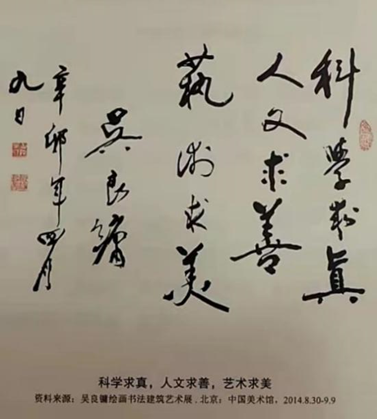 科學求真
人文求善
藝術求美
吳良鏞
辛卯年四月
九日
科学求真，人文求善，艺术求美
资料来源：吴良镛绘画书法建筑艺术展．北京：中国美术馆，2014.8.30-9.9